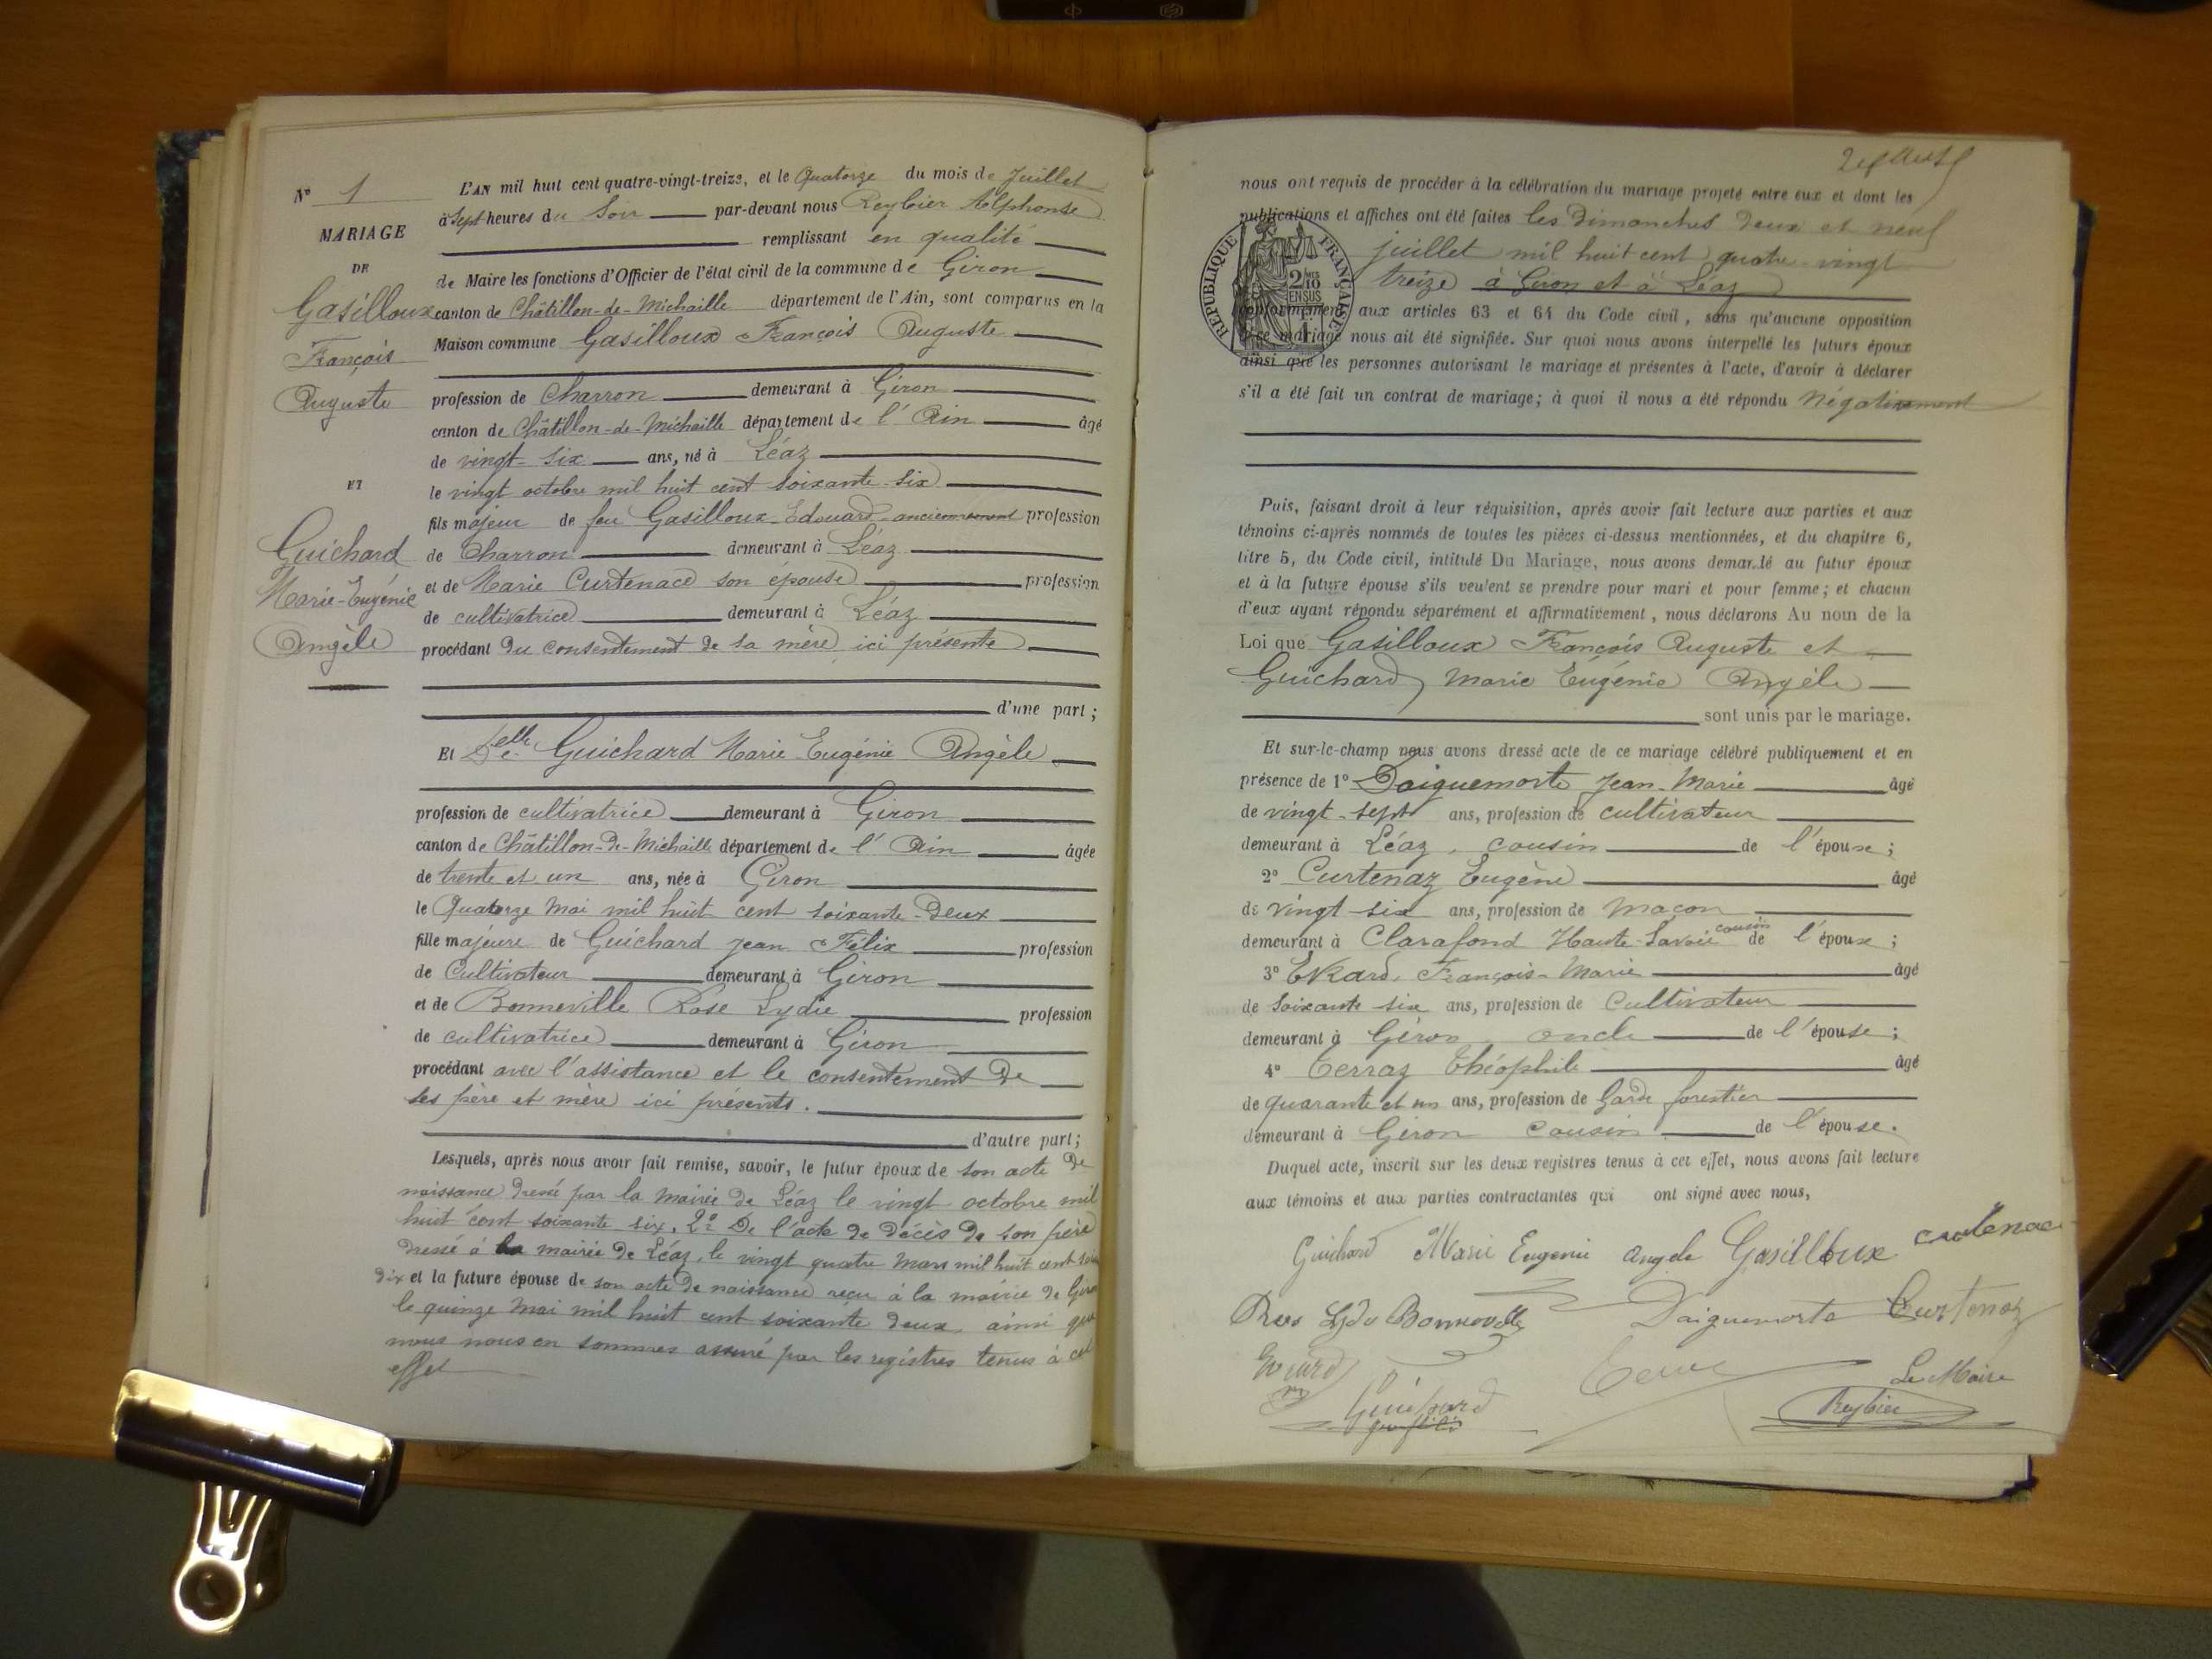 N° 1
MARIAGE
DE
Gasilloux
François
Auguste
ET
Guichard
Marie-Eugénie
Angèle
L'AN mil huit cent quatre-vingt-treize, et le Quatorze du mois de Juillet
à Sept heures du Soir par-devant nous Reybier Alphonse
remplissant en qualité
de Maire les fonctions d'Officier de l'état civil de la commune de Giron
canton de Châtillon-de-Michaille département de l'Ain, sont comparus en la
Maison commune Gasilloux François Auguste
profession de Charron demeurant à Giron
canton de Châtillon-de-Michaille département de l'Ain âgé
de vingt-six ans, né à Léaz
le vingt octobre mil huit cent soixante-six
fils majeur de feu Gasilloux Edouard anciennement profession
de Charron demeurant à Léaz
et de Marie Curtenace son épouse profession
de cultivatrice demeurant à Léaz
procédant du consentement de sa mère ici présente
d'une part;
Et Delle Guichard Marie Eugénie Angèle
profession de cultivatrice demeurant à Giron
canton de Châtillon-de-Michaille département de l'Ain âgée
de trente et un ans, née à Giron
le Quatorze Mai mil huit cent soixante-deux
fille majeure de Guichard Jean Félix profession
de Cultivateur demeurant à Giron
et de Bonneville Rose Lydie profession
de cultivatrice demeurant à Giron
procédant avec l'assistance et le consentement de
ses père et mère ici présents.
d'autre part;
Lesquels, après nous avoir fait remise, savoir, le futur époux de son acte de
naissance dressé par la mairie de Léaz le vingt octobre mil
huit cent soixante six, 2° De l'acte de décès de son père
dressé à la mairie de Léaz, le vingt quatre mars mil huit cent
dix et la future épouse de son acte de naissance reçu à la mairie de Giron
le quinze mai mil huit cent soixante deux, ainsi que
nous nous en sommes assuré par les registres tenus à cet
effet
nous ont requis de procéder à la célébration du mariage projeté entre eux et dont les
publications et affiches ont été faites les Dimanches deux et neuf
juillet mil huit cent quatre-vingt
treize à Giron et à Léaz
REPUBLIQUE FRANÇAISE
2/10 EN SUS
conformément aux articles 63 et 64 du Code civil, sans qu'aucune opposition
à ce mariage nous ait été signifiée. Sur quoi nous avons interpellé les futurs époux
ainsi que les personnes autorisant le mariage et présentes à l'acte, d'avoir à déclarer
s'il a été fait un contrat de mariage; à quoi il nous a été répondu Négativement
Puis, faisant droit à leur réquisition, après avoir fait lecture aux parties et aux
témoins ci-après nommés de toutes les pièces ci-dessus mentionnées, et du chapitre 6,
titre 5, du Code civil, intitulé Du Mariage, nous avons demandé au futur époux
et à la future épouse s'ils veulent se prendre pour mari et pour femme; et chacun
d'eux ayant répondu séparément et affirmativement, nous déclarons Au nom de la
Loi que Gasilloux François Auguste et
Guichard, Marie Eugénie Angèle
sont unis par le mariage.
Et sur-le-champ nous avons dressé acte de ce mariage célébré publiquement et en
présence de 1° Daiguemorte Jean-Marie âgé
de vingt-sept ans, profession de cultivateur
demeurant à Léaz, cousin de l'époux;
2° Curtenaz Eugène âgé
de vingt-six ans, profession de maçon
demeurant à Clarafond Haute-Savoie cousin de l'époux;
3° François-Marie âgé
de soixante six ans, profession de Cultivateur
demeurant à Giron oncle de l'épouse;
4° Terraz Théophile âgé
de quarante et un ans, profession de Garde forestier
demeurant à Giron cousin de l'épouse.
Duquel acte, inscrit sur les deux registres tenus à cet effet, nous avons fait lecture
aux témoins et aux parties contractantes qui ont signé avec nous,
Guichard Marie Eugenie Angele Gasilloux
Bonneville Daiguemorte Curtenaz
Le Maire
Guichard Reybier